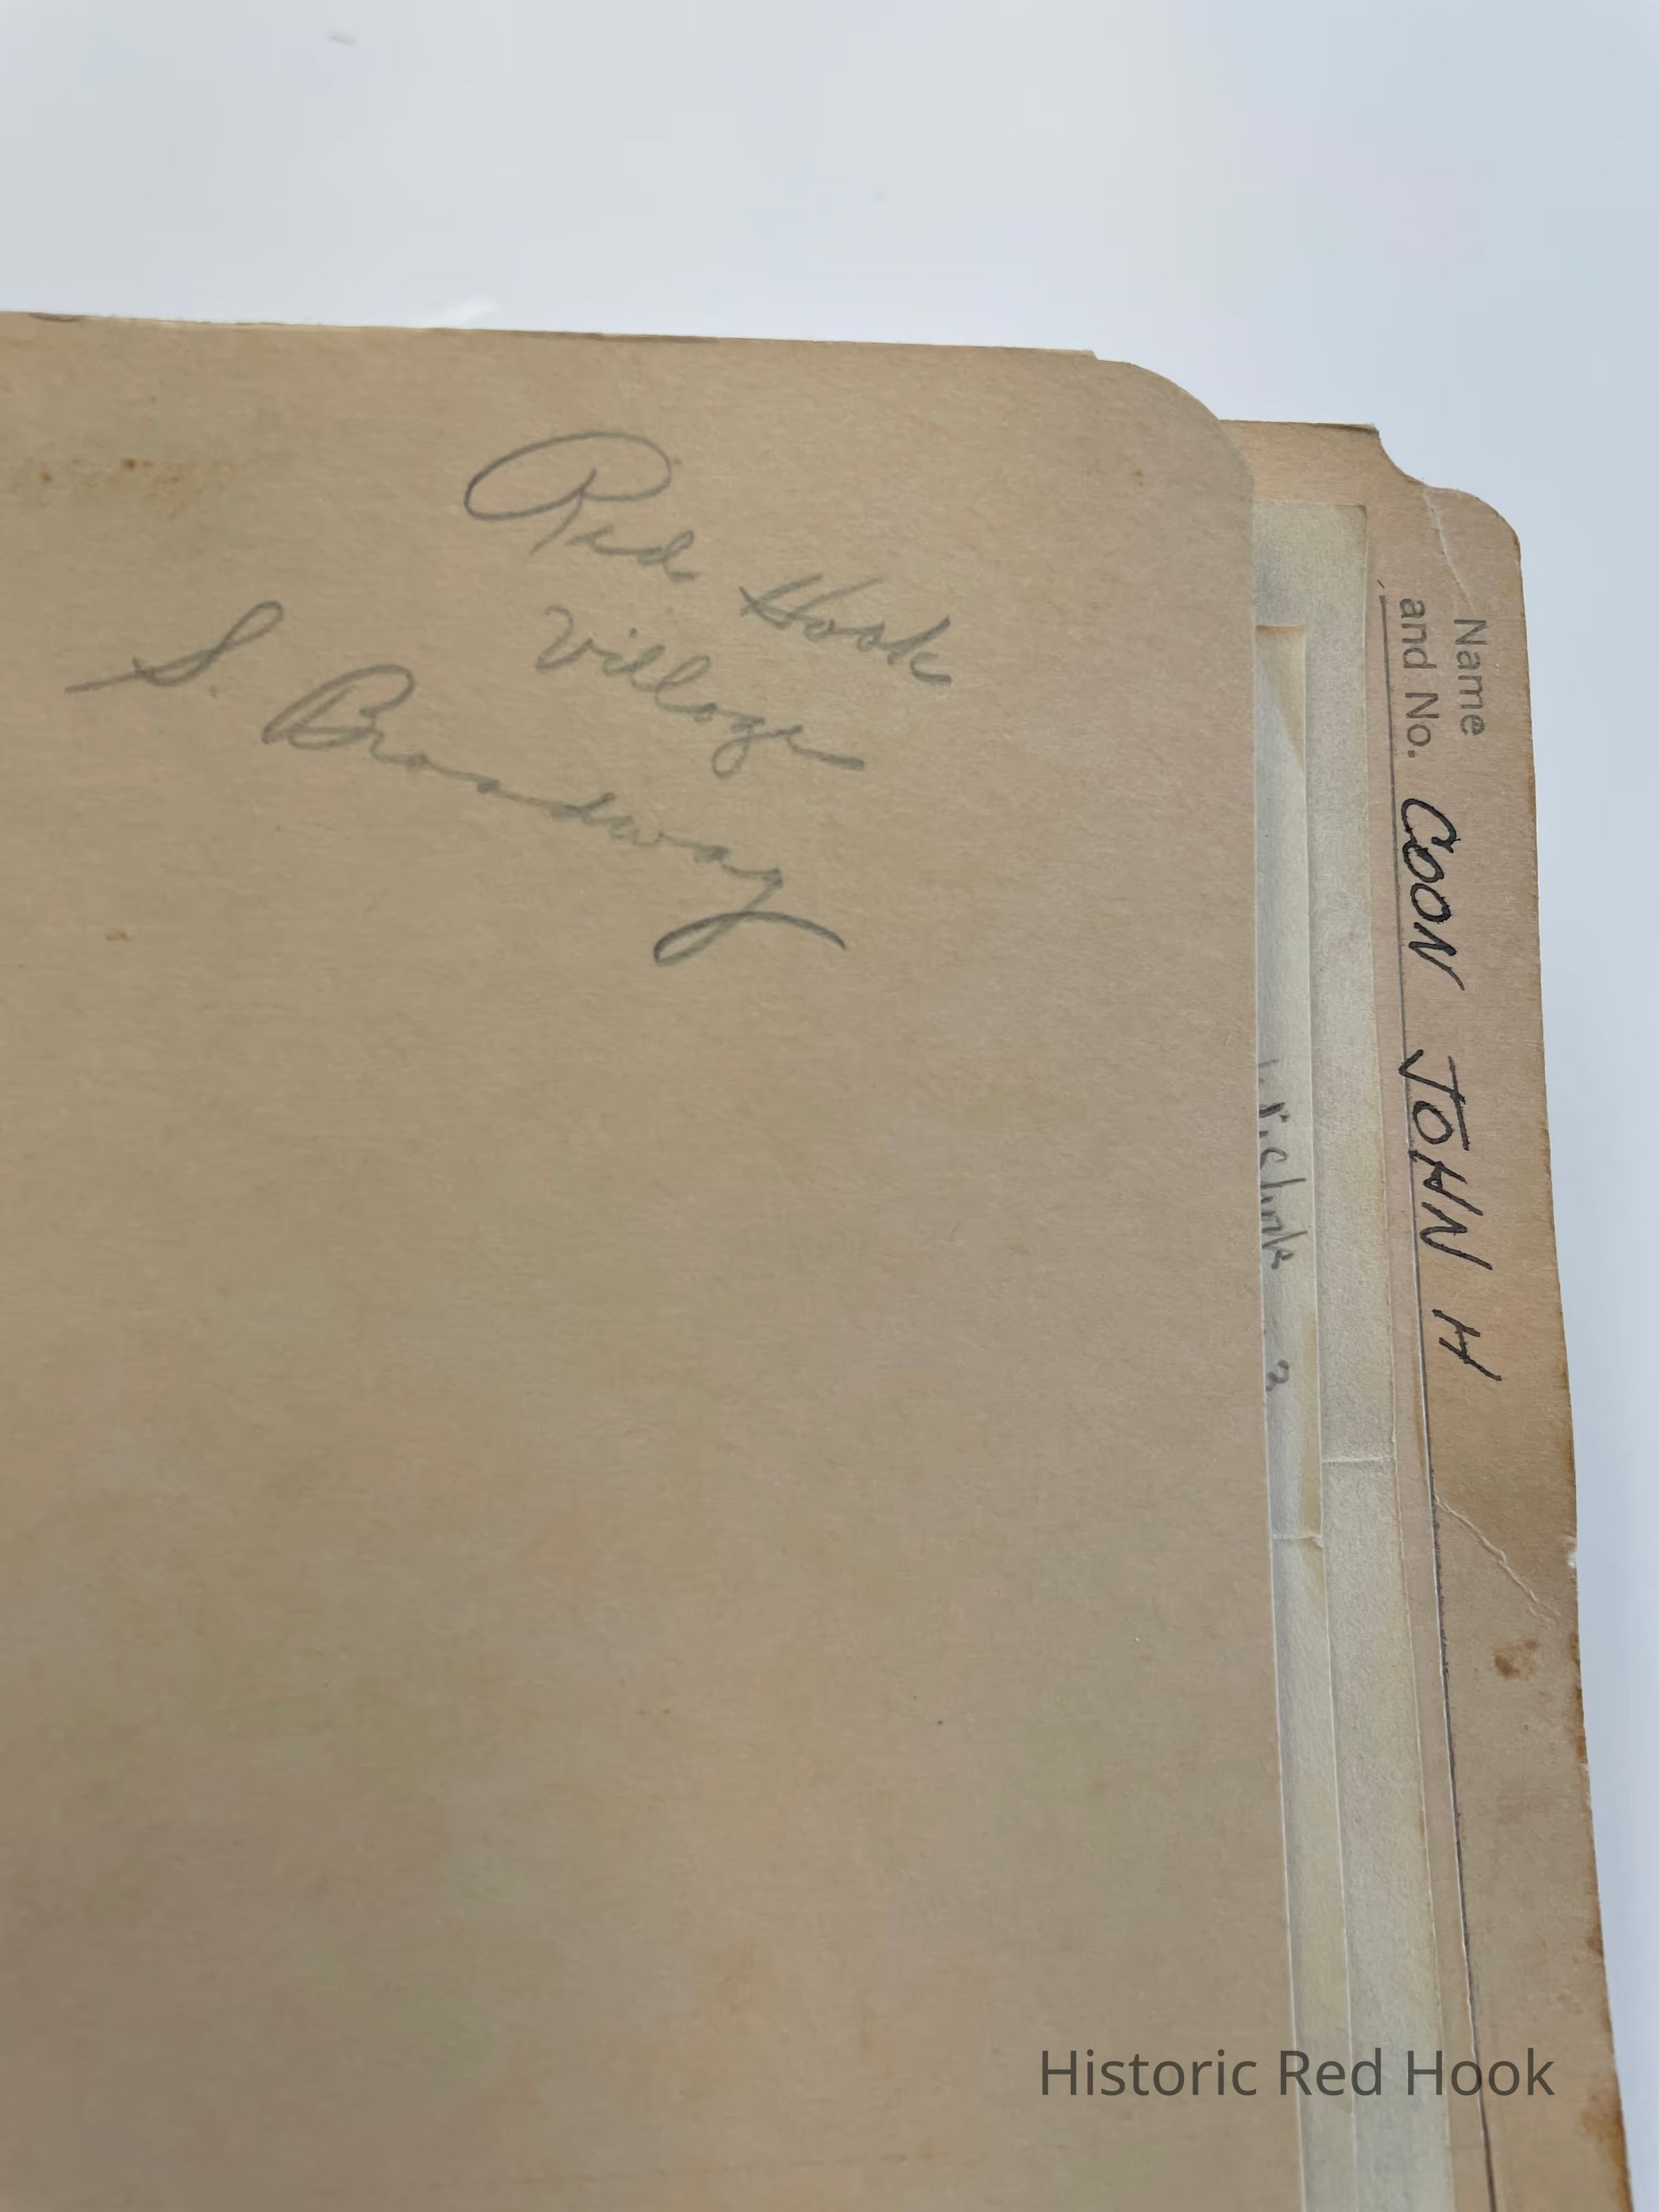 Red Hook
Village
S. Broadway
Name
and No. COON JOHN H
Historic Red Hook